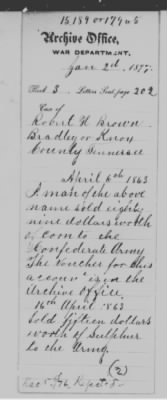 15189 or 17905
Archive Office,
WAR DEPARTMENT.
Jany 2nd, 1877.
Book 3 Letters Sent, page 202
Case of
Robert H Brown
Bradley or Knox
County Tennessee
April 6th 1863
A man of the above
name sold eighty
nine dollars worth
of corn to the
Confederate Army
The Voucher for this
account is in the
Archive Office.
16th April 1863
Sold fifteen dollars
worth of
to the Army.
(2)
Dec 5/76